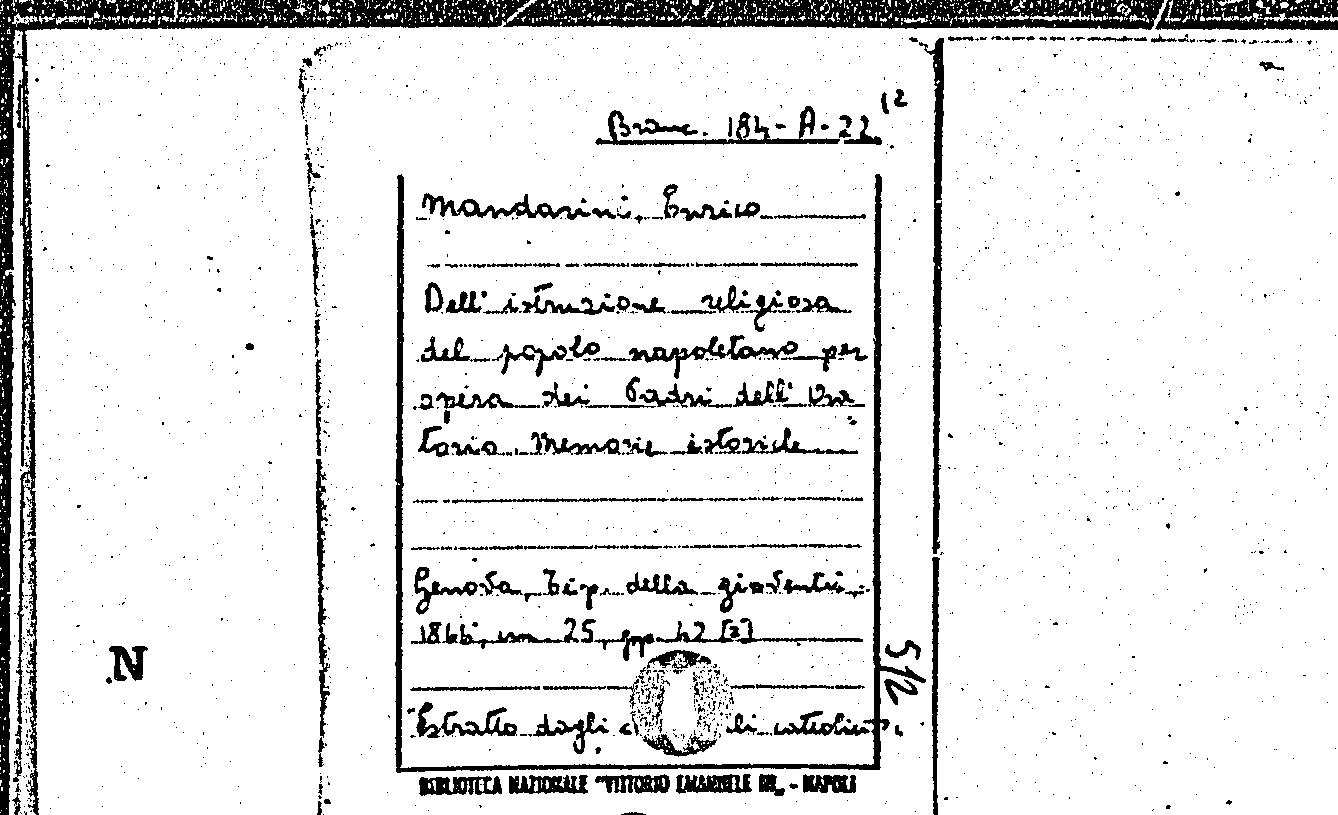 Branc. 184-A-22 12
Mandarini, Enrico
Dell'istruzione religiosa
del popolo napoletano per
opera dei Padri dell'Ora
torio. Memorie istoriche
Genova, Tip. della gioventù,
1866, cm. 25, pp. 42 [2]
Estratto dagli li cattolici".
N
5/2
BIBLIOTECA NAZIONALE "VITTORIO EMANUELE III" - NAPOLI